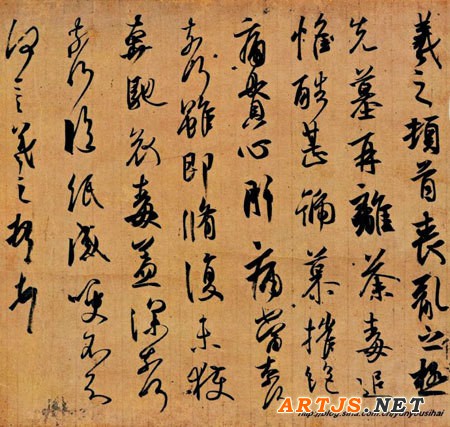 羲之頓首喪亂之極
先墓再離荼毒追
惟酷甚號慕摧絕
痛貫心肝痛當奈何
奈何雖即脩復未獲
奔馳哀毒益深奈何
奈何臨紙感哽不知
何言羲之頓首頓首
http://blog.sina.com.cn/yunyousihai
ARTJS.NET